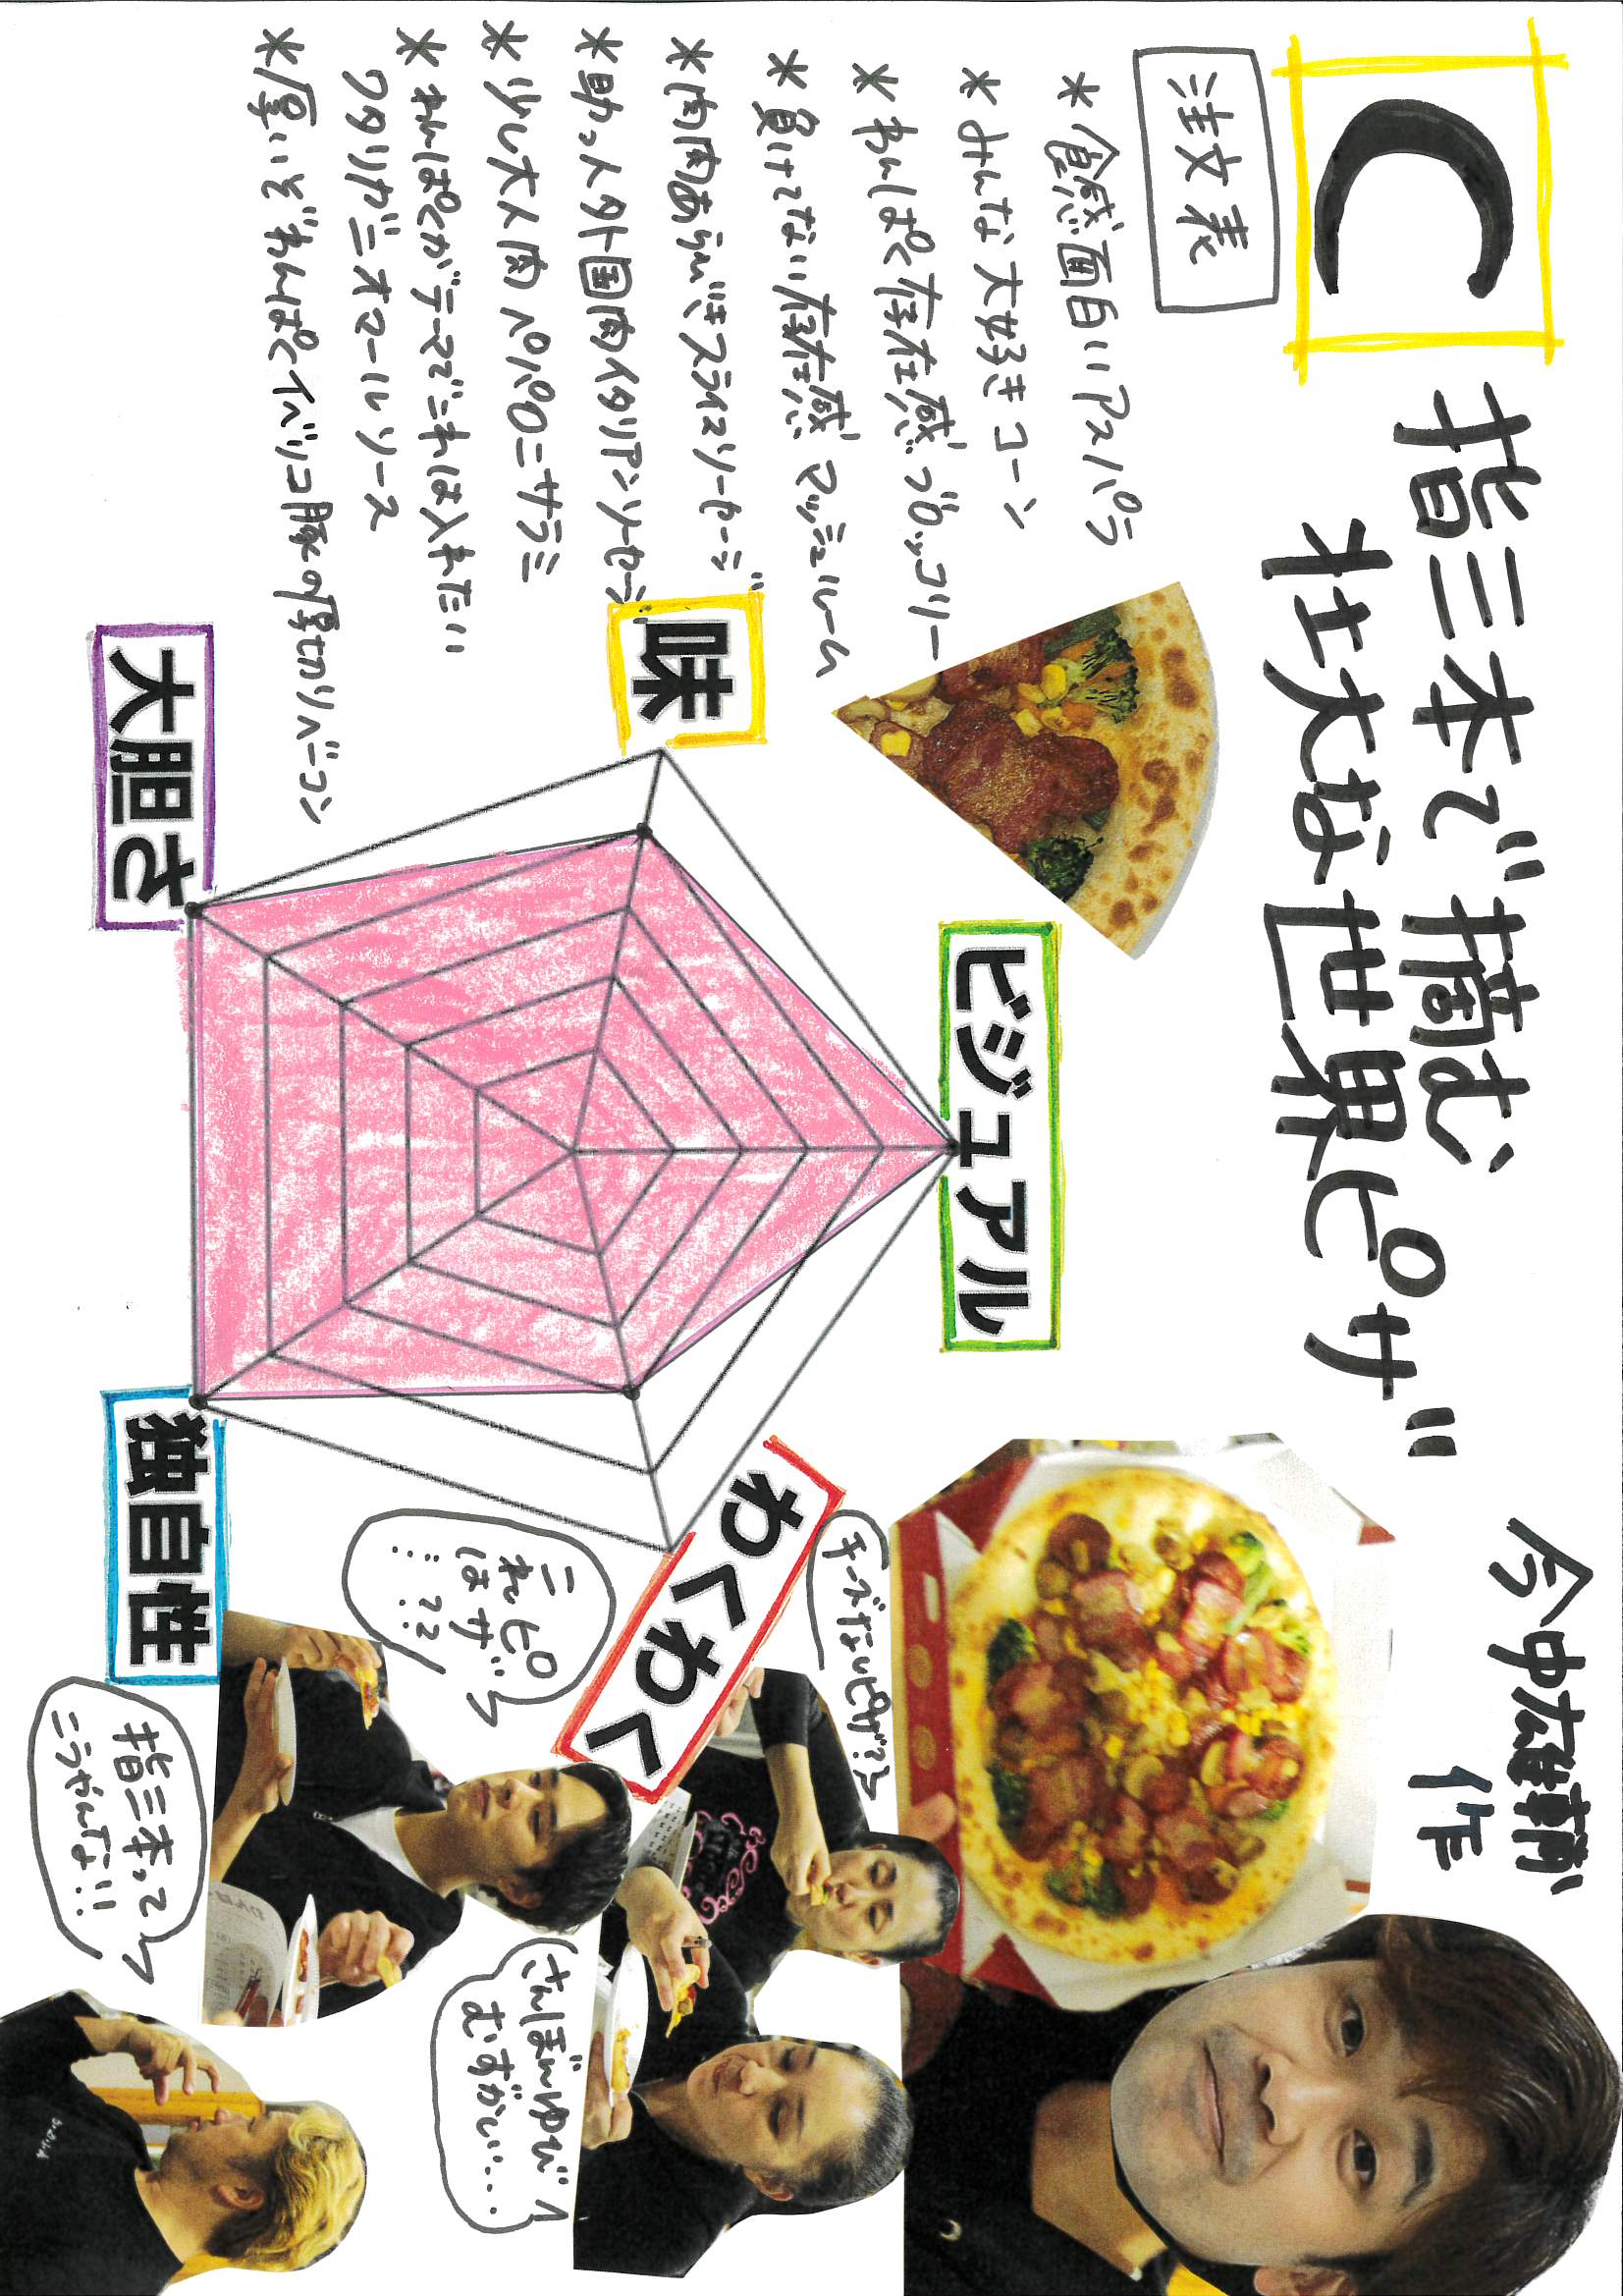 C
指三本で摘む
壮大な世界ピザ
今中雄輔
作
注文表
*食感面白いアスパラ
*みんな大好きコーン
*わんぱく存在感ブロッコリー
*負けてない存在感 マッシュルーム
*肉肉あらびきスライスソーセージ
*助っ人外国肉イタリアンソーセージ
*少し大人肉ペパロニサラミ
*わんぱくがテーマでこれは入れたい
ワタリガニオマールソース
*厚いぞわんぱくイベリコ豚の厚切りベーコン
ビジュアル
味
わくわく
大胆さ
独自性
チーズなしピザ??
これは
ピザ…??
さんぼんゆび
むずかしい…
指三本って
こうやんな!!